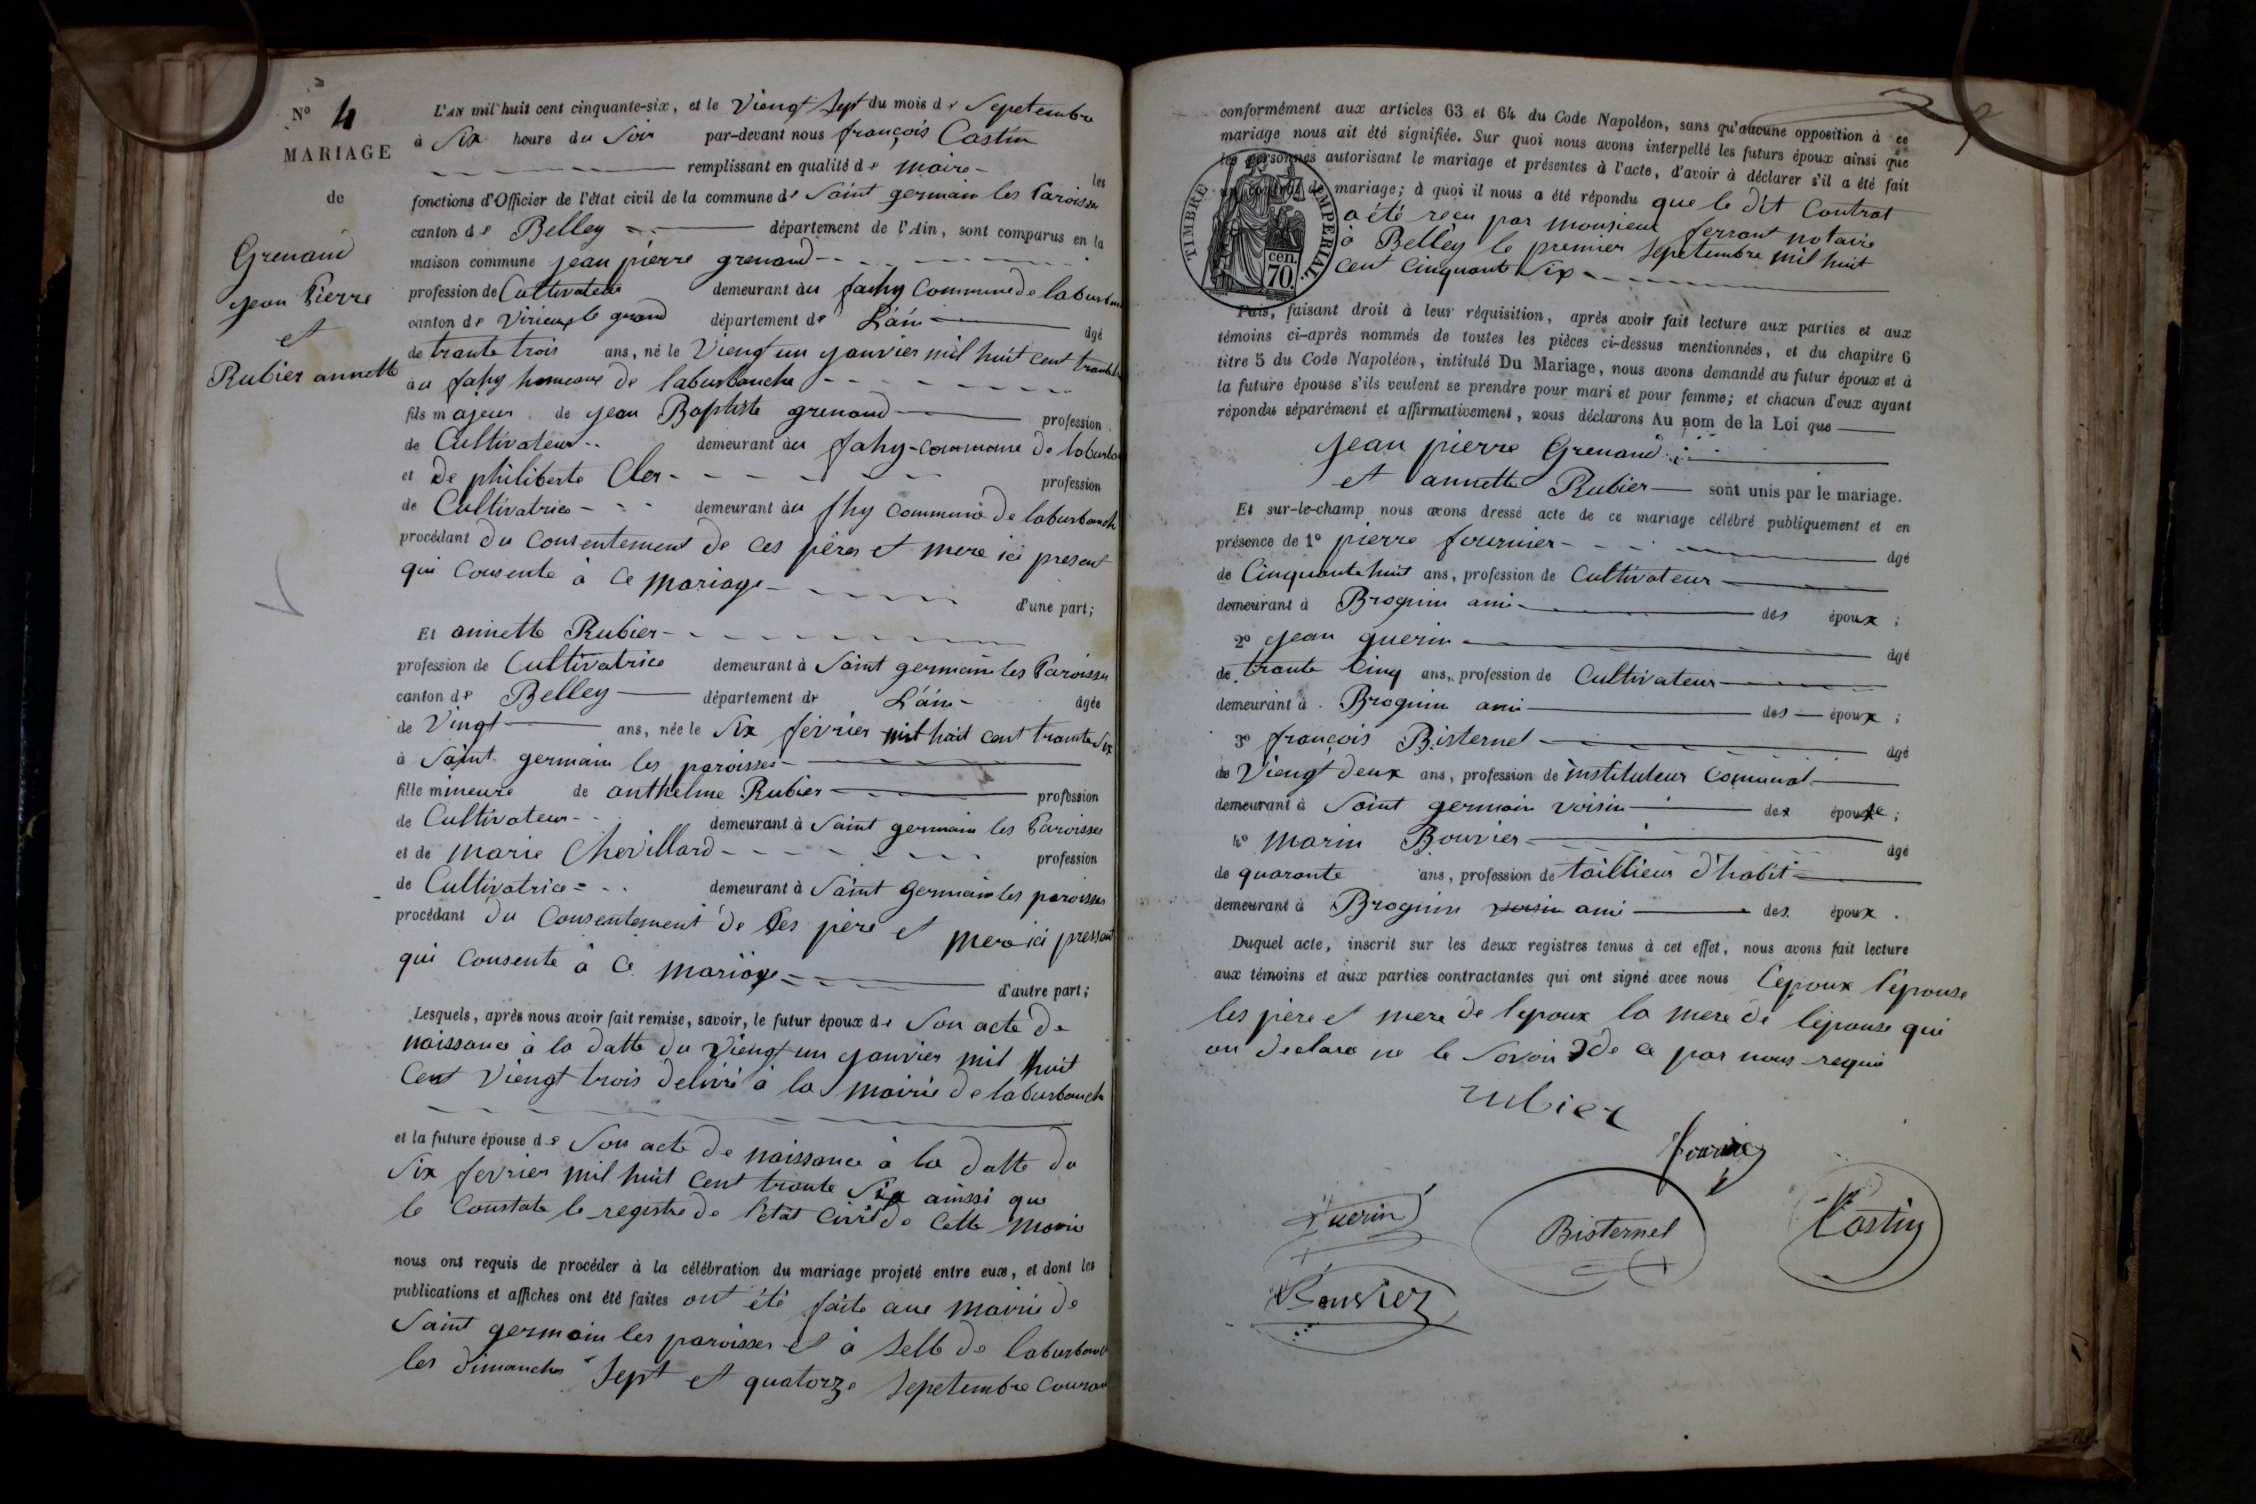 N° 4
MARIAGE
de
Grenand
Jean Pierre
et
Rubier annette
L'AN mil huit cent cinquante-six, et le Viengt Sept du mois de Sepetembre
à Six heure du Soir par-devant nous françois Castin
remplissant en qualité de maire les
fonctions d'Officier de l'état civil de la commune de Saint germain les Paroisses
canton de Belley département de l'Ain, sont comparus en la
maison commune jean pierre grenand
profession de Cultivateur demeurant au fahy Commune de laburbanche
canton de Virieux le grand département de L'ain âgé
de trante trois ans, né le Viengt un janvier mil huit cent
au fahy hameaux de laburbanche
fils majeur de jean Baptiste grenand profession
de Cultivateur demeurant au fahy commune de laburban
et de philiberte Cler profession
de Cultivatrice demeurant au fhy Commune de laburbanch
procédant du Consentement de ces pères et mere ici present
qui Consente à ce mariage d'une part;
Et annette Rubier
profession de Cultivatrice demeurant à Saint germain les Paroisses
canton de Belley département de L'ain âgée
de Vingt ans, née le Six février mil huit cent trante Six
à Saint germain les paroisses
fille mineure de anthelme Rubier profession
de Cultivateur demeurant à Saint germain les Paroisses
et de marie Chevillard profession
de Cultivatrice demeurant à Saint germain les paroisses
procédant du Consentement de Ses père et mere ici pressant
qui Consente à Ce mariage d'autre part;
Lesquels, après nous avoir fait remise, savoir, le futur époux de Son acte de
naissance à la datte du Viengt un janvier mil huit
Cent Viengt trois delivré à la mairie de laburbanch
et la future épouse de Son acte de naissance à la datte du
Six fevrier mil huit Cent trante Six ainssi que
le Constate le registre de l'etat Civil de Cette mairie
nous ont requis de procéder à la célébration du mariage projeté entre eux, et dont les
publications et affiches ont été faites ont été faite aux mairie de
Saint germain les paroisses et à selle de laburbanch
les dimanches Sept et quatorze Sepetembre Couran
conformément aux articles 63 et 64 du Code Napoléon, sans qu'aucune opposition à ce
mariage nous ait été signifiée. Sur quoi nous avons interpellé les futurs époux ainsi que
les personnes autorisant le mariage et présentes à l'acte, d'avoir à déclarer s'il a été fait
un contrat de mariage; à quoi il nous a été répondu que le dit Contrat
a été reçu par monsieur ferrant notaire
à Belley le premier Sepetembre mil huit
cent Cinquante Six
TIMBRE IMPÉRIAL
cen.
70.
Puis, faisant droit à leur réquisition, après avoir fait lecture aux parties et aux
témoins ci-après nommés de toutes les pièces ci-dessus mentionnées, et du chapitre 6
titre 5 du Code Napoléon, intitulé Du Mariage, nous avons demandé au futur époux et à
la future épouse s'ils veulent se prendre pour mari et pour femme; et chacun d'eux ayant
répondu séparément et affirmativement, nous déclarons Au nom de la Loi que
jean pierre Grenand
et annette Rubier sont unis par le mariage.
Et sur-le-champ nous avons dressé acte de ce mariage célébré publiquement et en
présence de 1° pierre fournier âgé
de Cinquante huit ans, profession de Cultivateur
demeurant à Brognin ami des époux;
2° jean guerin âgé
de trante Cinq ans, profession de Cultivateur
demeurant à Brognin ami des époux;
3° françois Bisternel âgé
de Viengt deux ans, profession de instituteur Comunal
demeurant à Saint germain voisin des épouse;
4° marin Bouvier âgé
de quarante ans, profession de taillieur d'habit
demeurant à Brognin voisin ami des époux.
Duquel acte, inscrit sur les deux registres tenus à cet effet, nous avons fait lecture
aux témoins et aux parties contractantes qui ont signé avec nous l'époux l'épouse
les père et mere de l'epoux la mere de l'épouse qui
on declaré ne le Savoir de ce par nous requis
rubier
fournier
Guerin
Bisternel
Castin
Bouvier